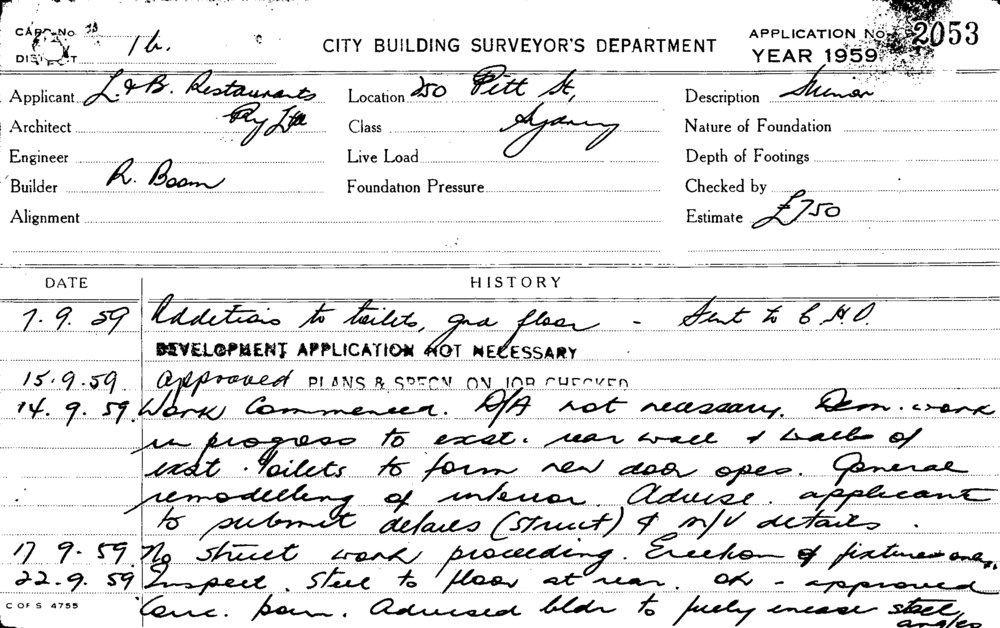 CARD No. 1b.
DISTRICT
CITY BUILDING SURVEYOR'S DEPARTMENT
APPLICATION No. 2053
YEAR 1959
Applicant L & B. Restaurants
Pty Ltd
Location 250 Pitt St,
Sydney
Description Minor
Architect
Class
Nature of Foundation
Engineer
Live Load
Depth of Footings
Builder R. Boom
Foundation Pressure
Checked by
Alignment
Estimate £750
DATE HISTORY
7. 9. 59 Additions to toilets, grd floor - Sent to C.H.O.
DEVELOPMENT APPLICATION NOT NECESSARY
15.9.59 approved PLANS & SPECN ON JOB CHECKED
14. 9. 59. Work Commenced. D/A not necessary. Dem. work
in progress to exist. rear wall & walls of
exist. toilets to form new door opes. General
remodelling of interior. Advise applicant
to submit details (struct) & m/v details.
17 9. 59. No struct work proceeding. Erection of fixtures only.
22. 9. 59 Inspect. Steel to floor at rear. OK - approved
Conc. pour. Advised bldr to fully encase steel
angles
C OF S 4755